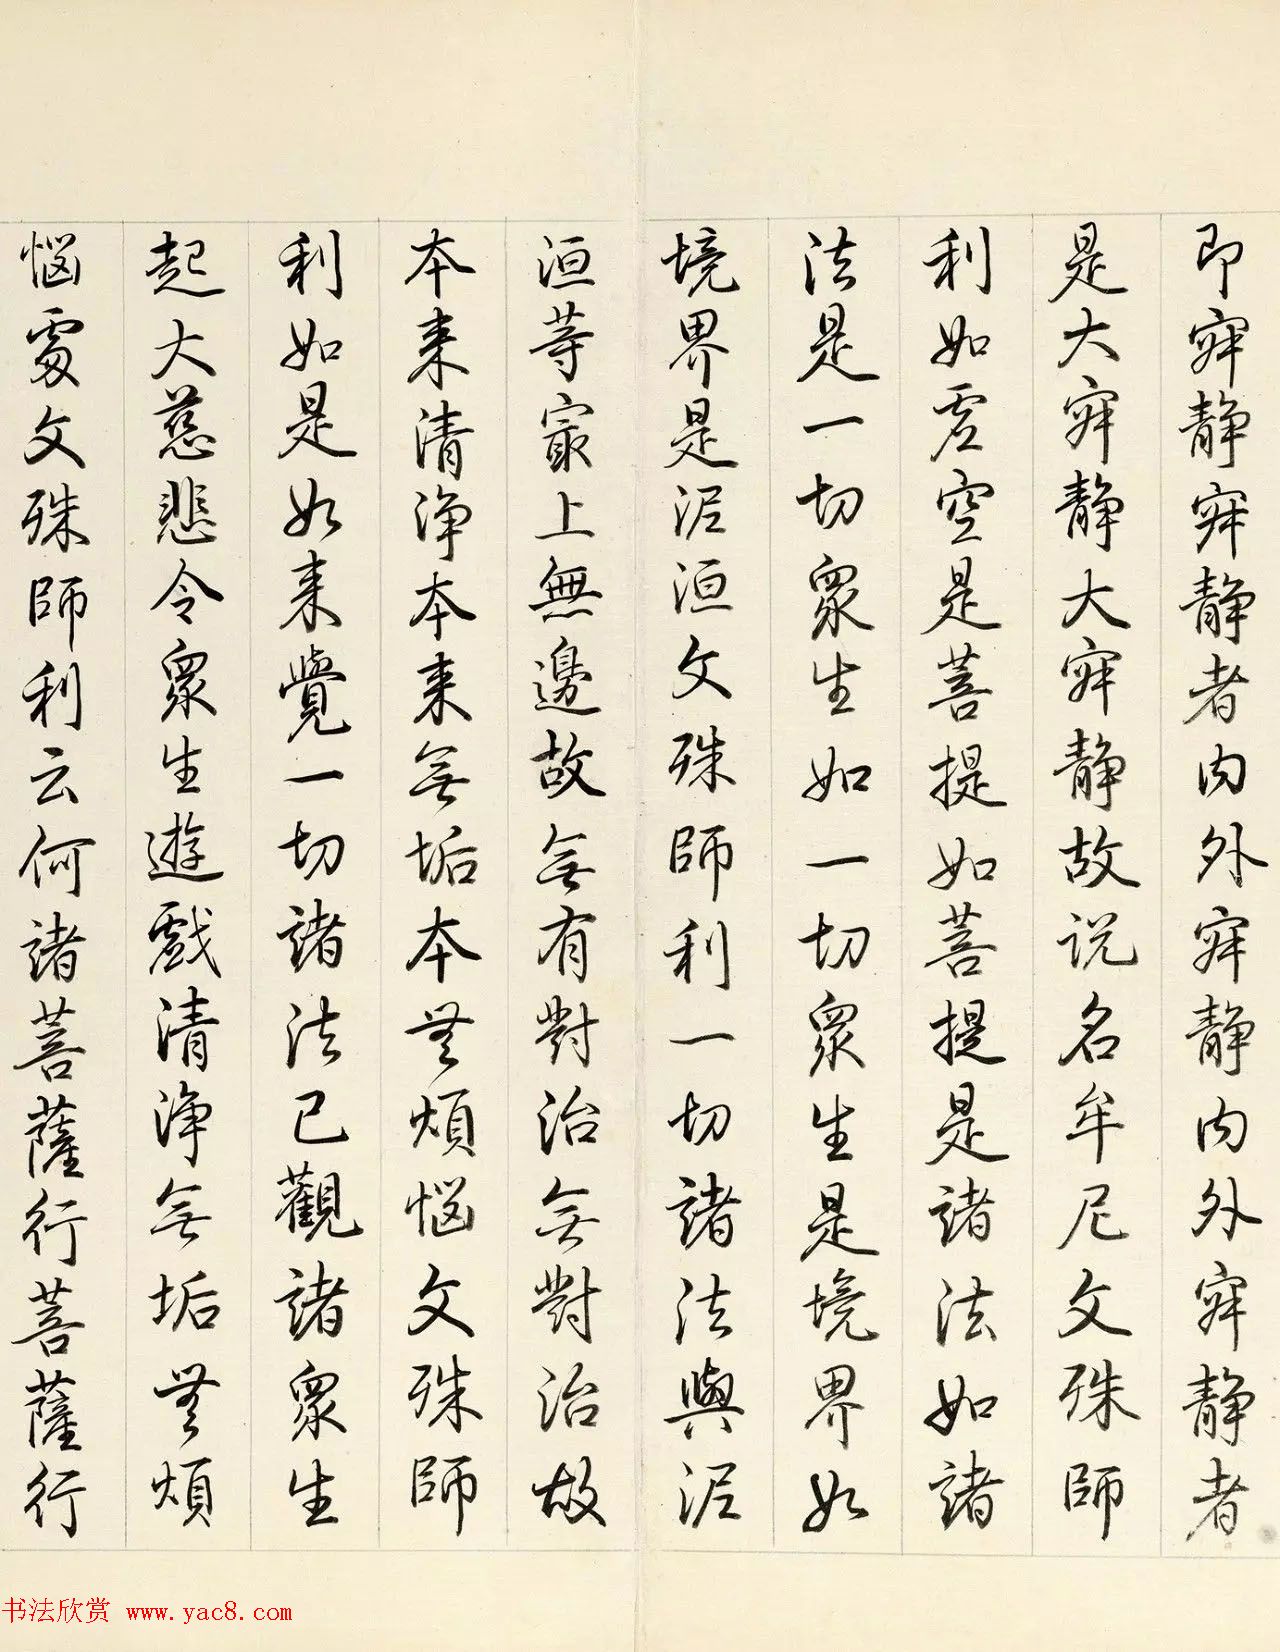 即寂静寂静者内外寂静内外寂静者
是大寂静大寂静故说名牟尼文殊師
利如虚空是菩提如菩提是諸法如諸
法是一切衆生如一切衆生是境界如
境界是泥洹文殊師利一切諸法與泥
洹等冣上無邊故無有對治無對治故
本来清浄本来無垢本無煩惱文殊師
利如是如来覺一切諸法已觀諸衆生
起大慈悲令衆生遊戲清浄無垢無煩
惱處文殊師利云何諸菩薩行菩薩行
书法欣赏 www.yac8.com